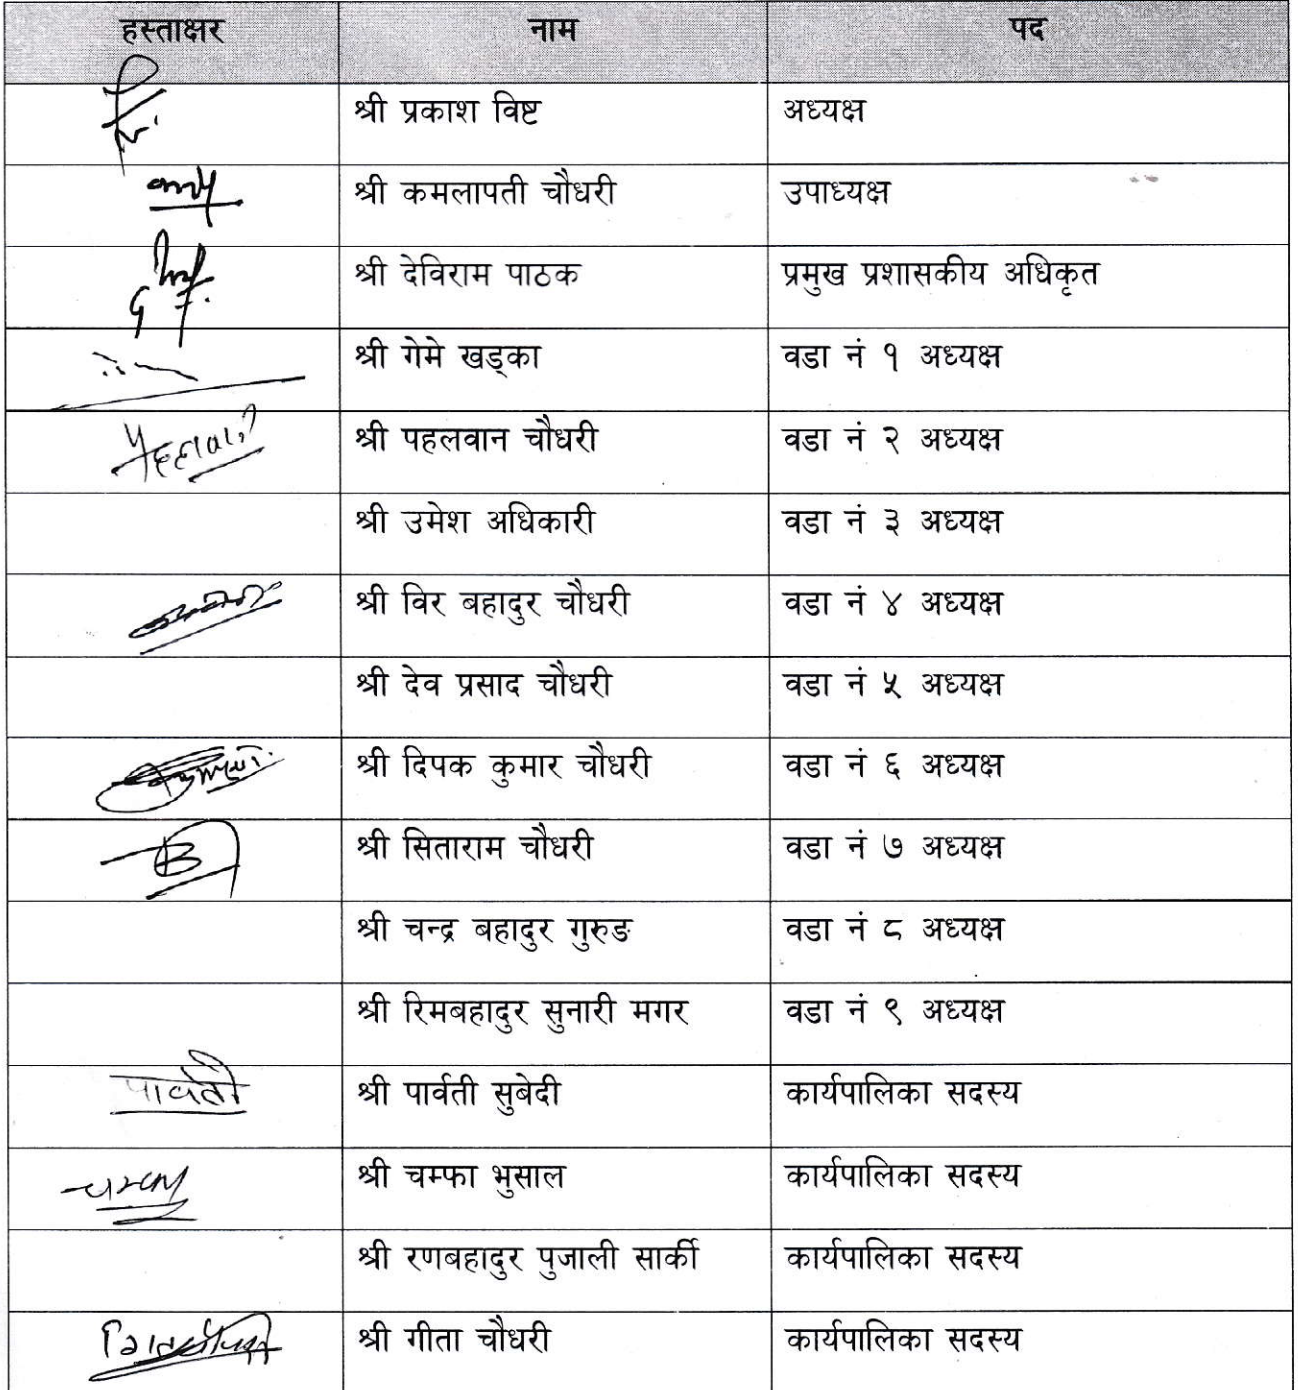 हस्ताक्षर नाम पद
श्री प्रकाश विष्ट अध्यक्ष
श्री कमलापती चौधरी उपाध्यक्ष
श्री देविराम पाठक प्रमुख प्रशासकीय अधिकृत
श्री गेमे खड्का वडा नं १ अध्यक्ष
श्री पहलवान चौधरी वडा नं २ अध्यक्ष
श्री उमेश अधिकारी वडा नं ३ अध्यक्ष
श्री विर बहादुर चौधरी वडा नं ४ अध्यक्ष
श्री देव प्रसाद चौधरी वडा नं ५ अध्यक्ष
श्री दिपक कुमार चौधरी वडा नं ६ अध्यक्ष
श्री सिताराम चौधरी वडा नं ७ अध्यक्ष
श्री चन्द्र बहादुर गुरुङ वडा नं ८ अध्यक्ष
श्री रिमबहादुर सुनारी मगर वडा नं ९ अध्यक्ष
पार्वती श्री पार्वती सुबेदी कार्यपालिका सदस्य
श्री चम्फा भुसाल कार्यपालिका सदस्य
श्री रणबहादुर पुजाली सार्की कार्यपालिका सदस्य
श्री गीता चौधरी कार्यपालिका सदस्य